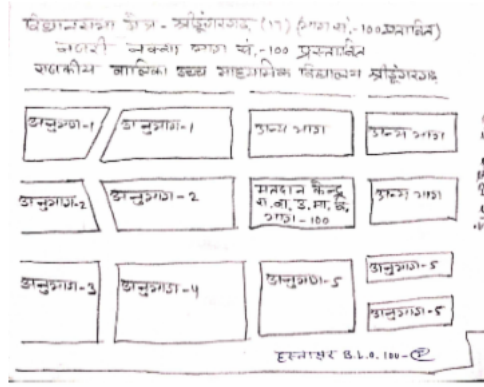 विधानसभा क्षेत्र - श्रीडूंगरगढ़ (भाग सं.-100 प्रस्तावित)
नजरी नक्शा भाग सं.-100 प्रस्तावित
राजकीय बालिका उच्च माध्यमिक विद्यालय श्रीडूंगरगढ़
अनुभाग-1
अनुभाग-1
अन्य भाग
अन्य भाग
अनुभाग-2
अनुभाग-2
मतदान केन्द्र
रा.बा.उ.मा.वि.
भाग-100
अन्य भाग
अनुभाग-3
अनुभाग-4
अनुभाग-5
अनुभाग-5
अनुभाग-5
हस्ताक्षर B.L.O. 100-